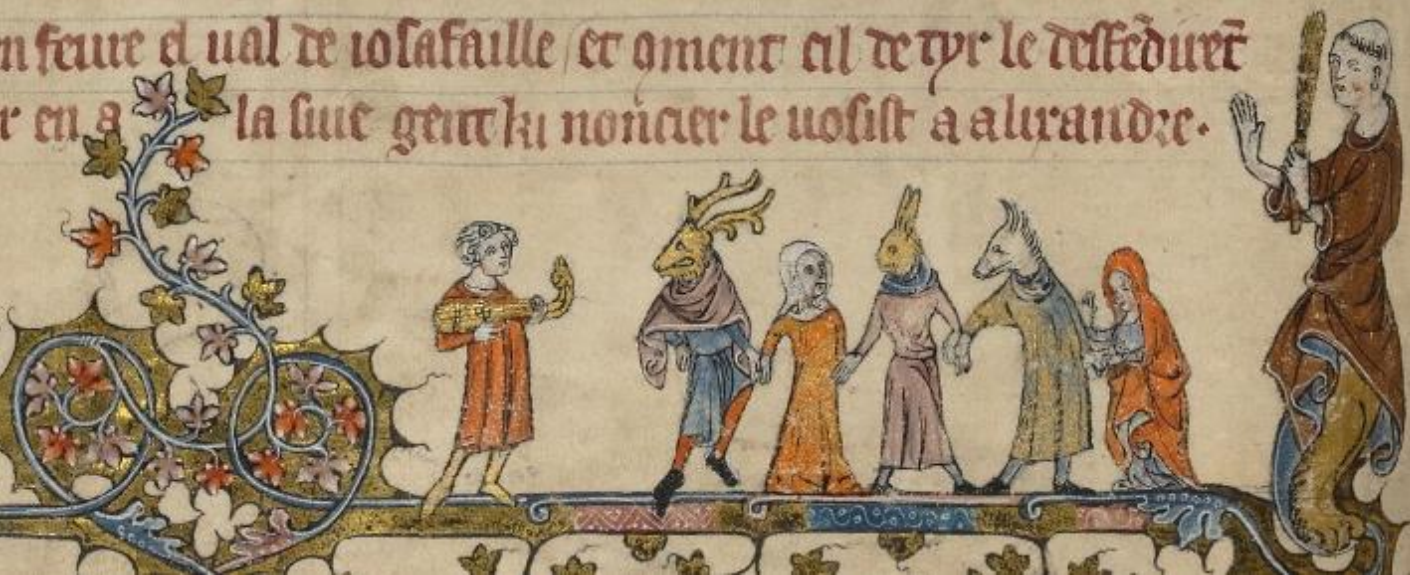 n feure el ual de iosafaille et ꝯment cil de tyr le deffẽdirẽt
r en a la siue gent ki noncier le uosist a alixandre.